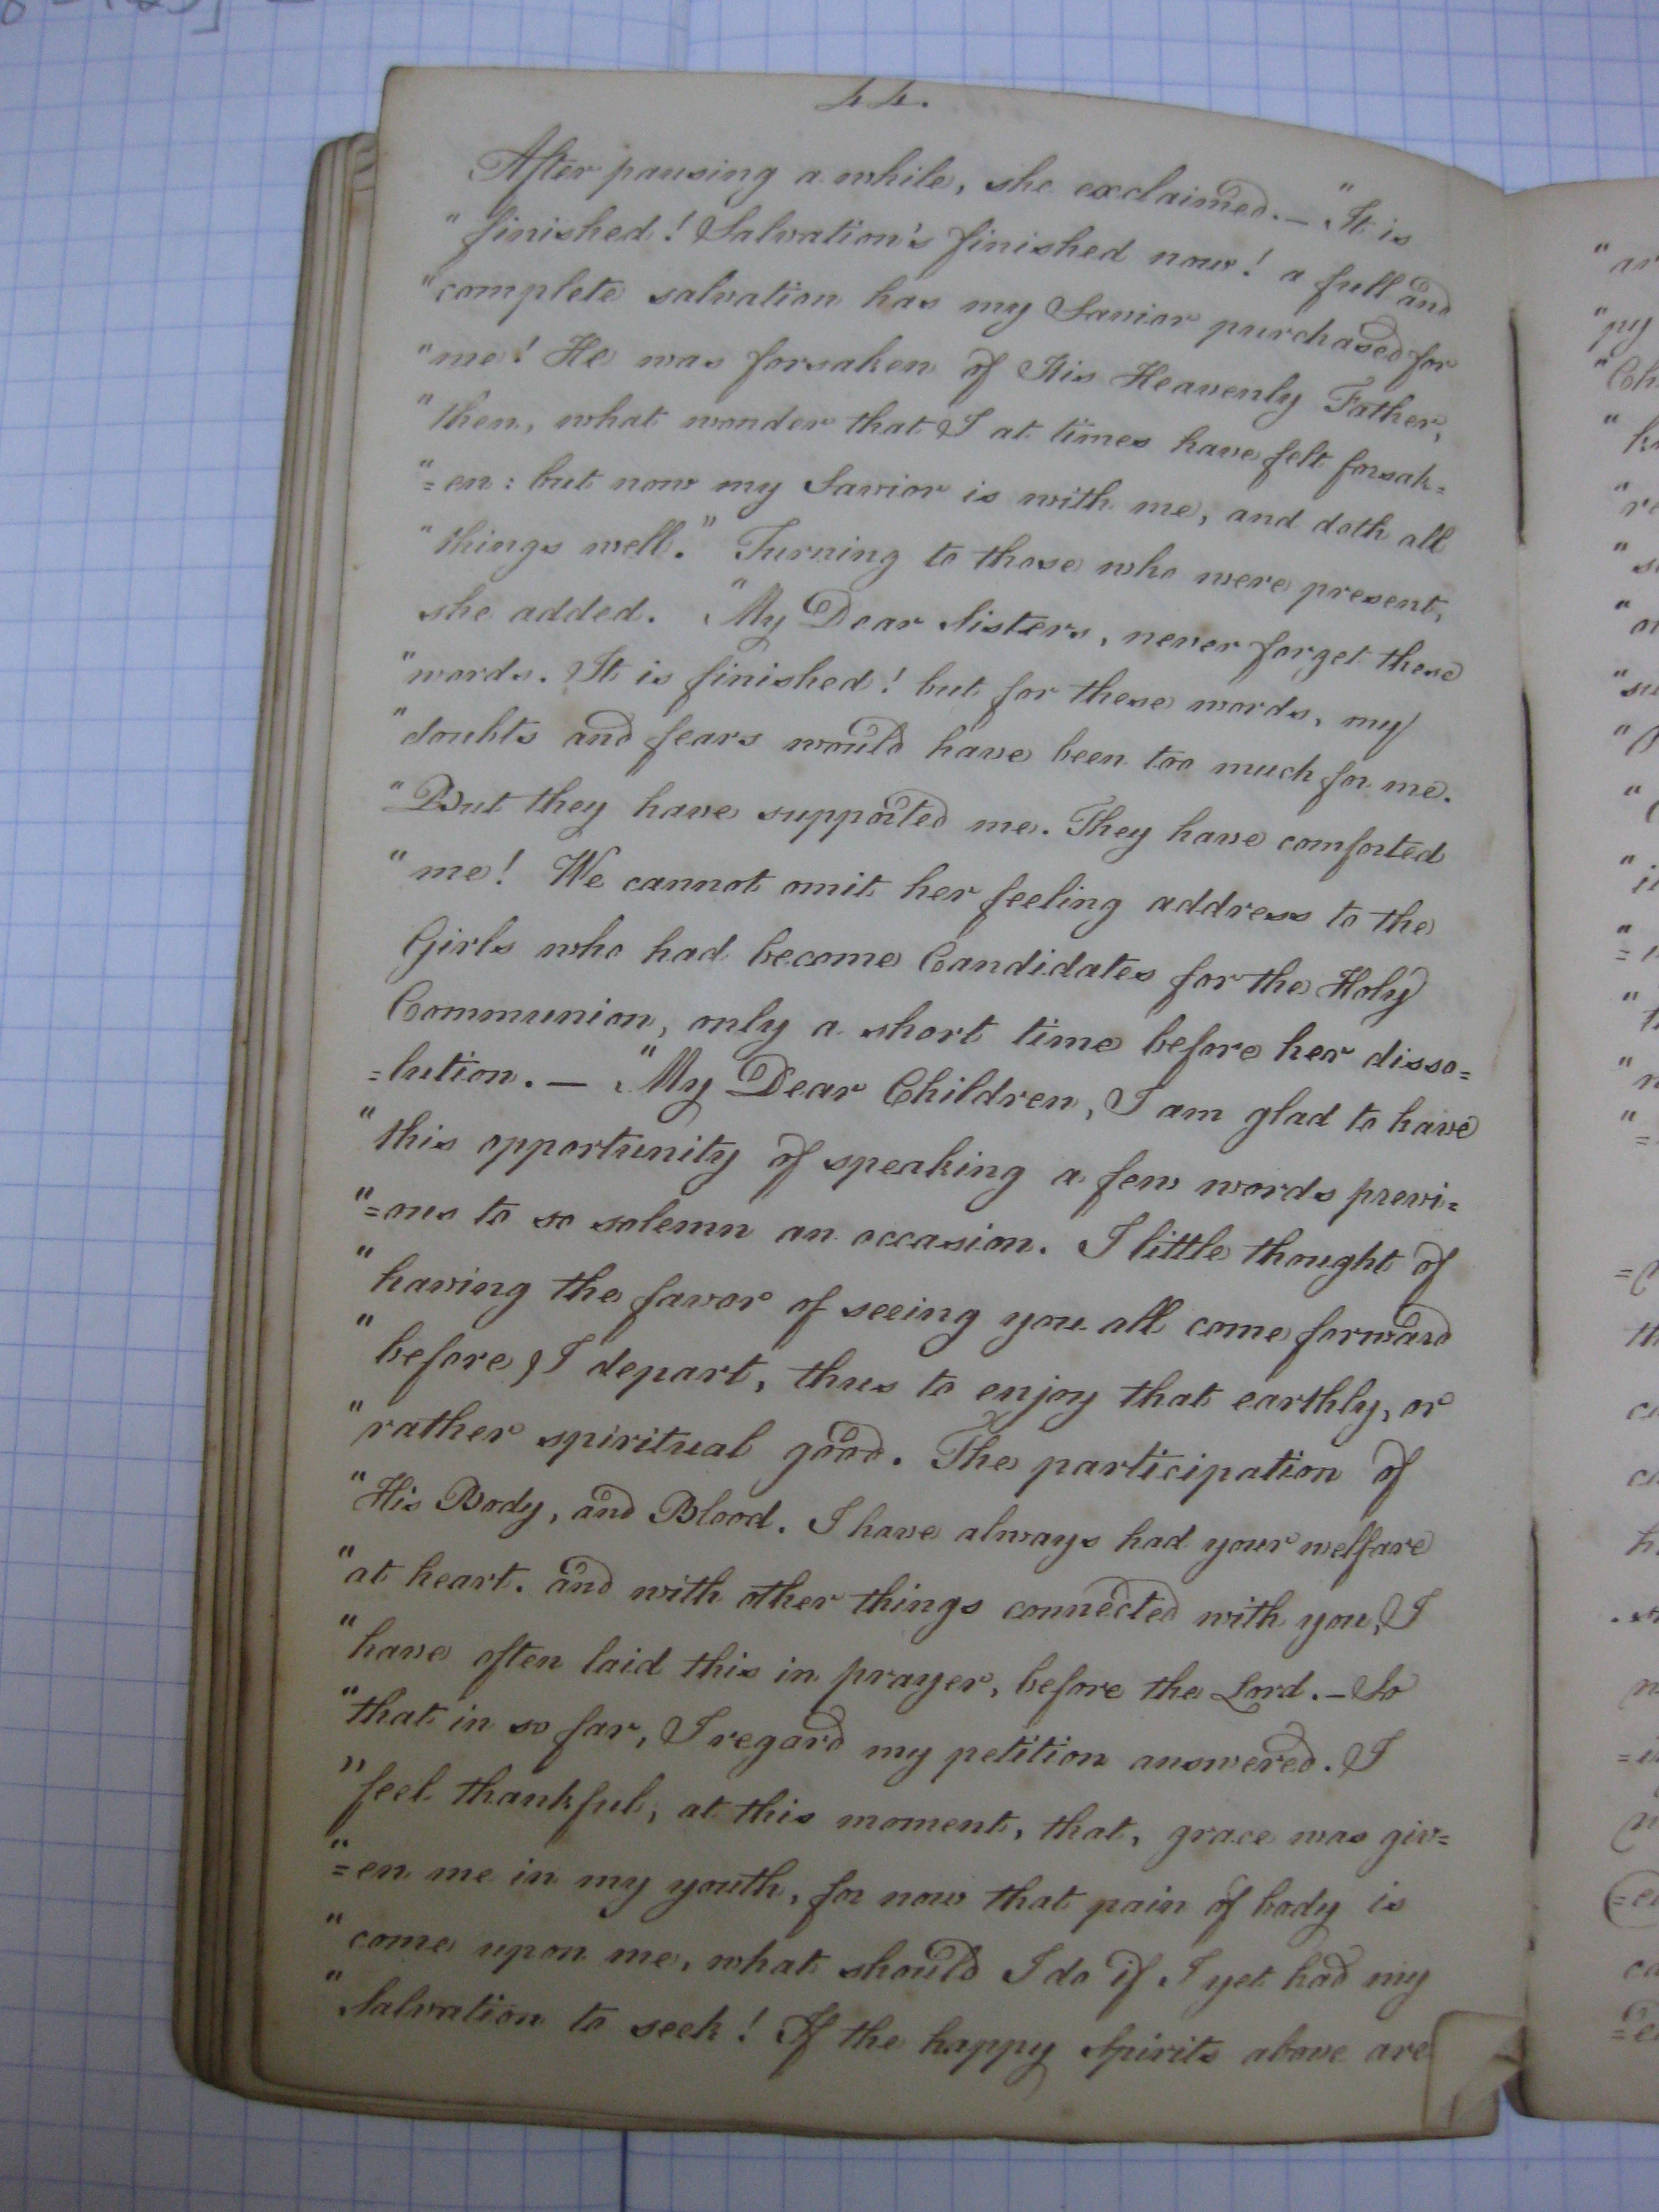 44.
After pausing a while, she exclaimed. — "It is
" finished! Salvation's finished now! a full and
" complete salvation has my Savior purchased for
" me! He was forsaken of His Heavenly Father,
" then, what wonder that I at times have felt forsak=
" =en: but now my Savior is with me, and doth all
" things well." Turning to those who were present,
she added. "My Dear Sisters, never forget these
" words. It is finished! but for these words, my
" doubts and fears would have been too much for me.
" But they have supported me. They have comforted
" me! We cannot omit her feeling address to the
Girls who had become Candidates for the Holy
Communion, only a short time before her disso=
=lution. — "My Dear Children, I am glad to have
" this opportunity of speaking a few words previ=
" =ous to so solemn an occasion. I little thought of
" having the favor of seeing you all come forward
" before I depart, thus to enjoy that earthly, or
" rather spiritual good. The participation of
" His Body, and Blood. I have always had your welfare
" at heart. and with other things connected with you, I
" have often laid this in prayer, before the Lord. — So
" that in so far, I regard my petition answered. I
" feel thankful, at this moment, that, grace was giv=
" =en me in my youth, for now that pain of body is
" come upon me, what should I do if I yet had my
" Salvation to seek! If the happy Spirits above are